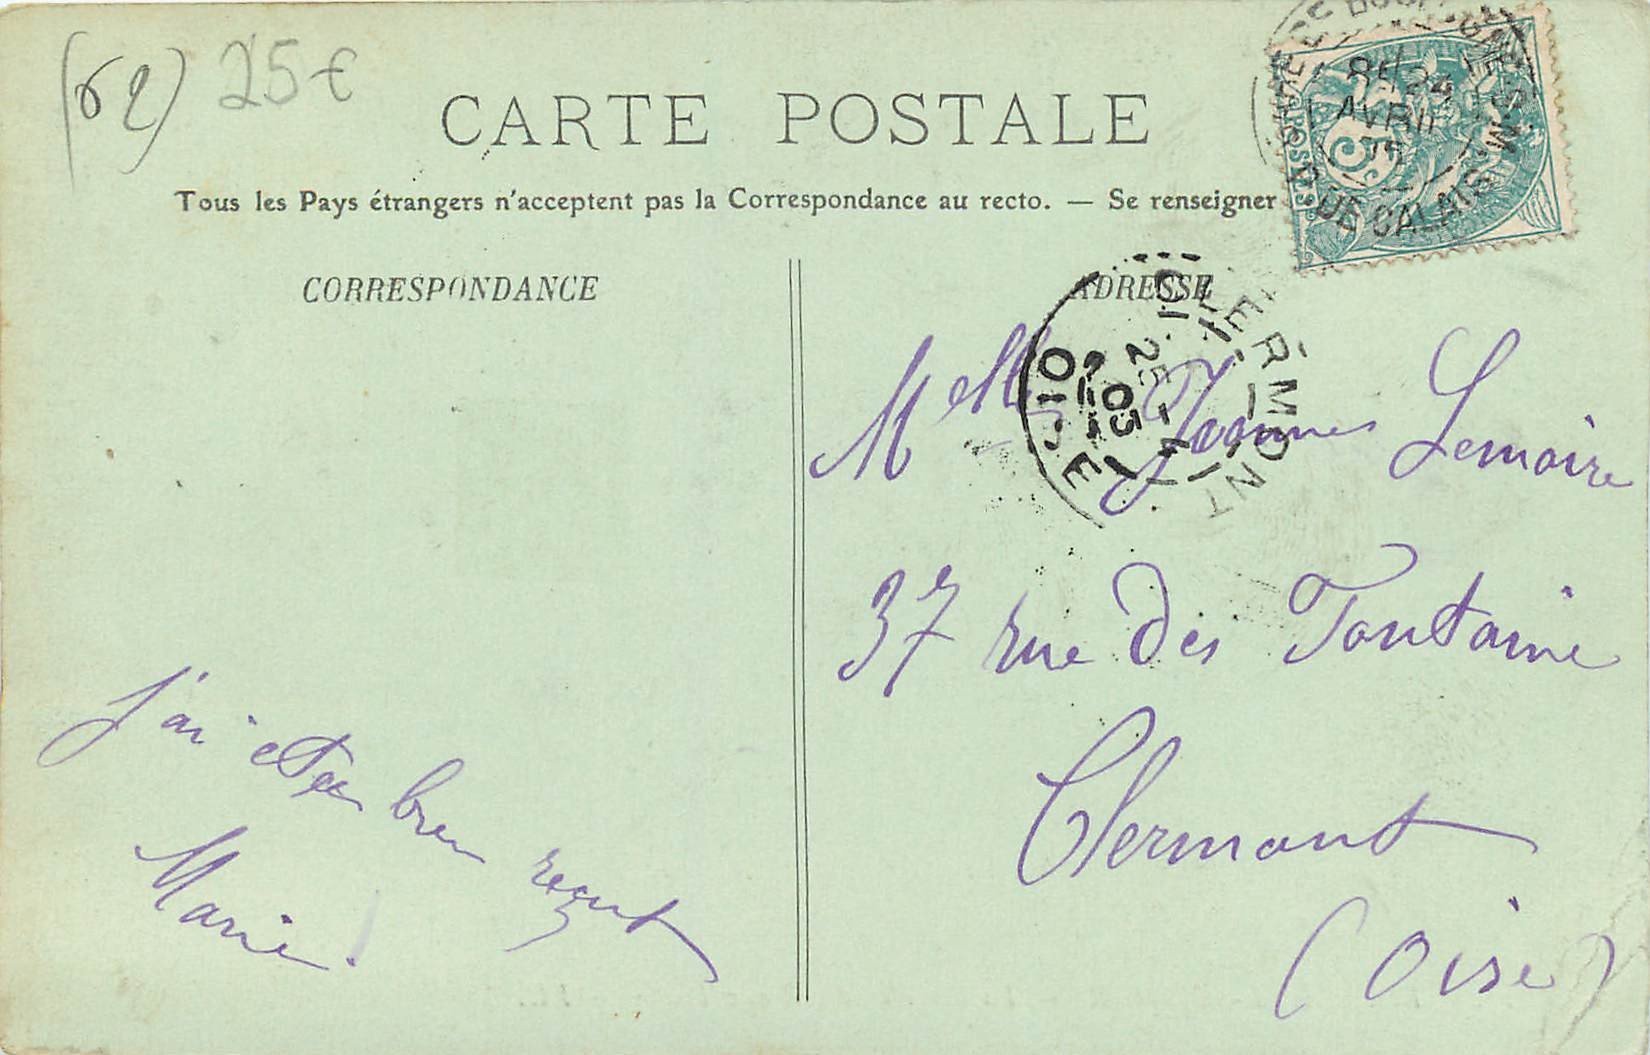 (62) 25€
CARTE POSTALE
Tous les Pays étrangers n'acceptent pas la Correspondance au recto. — Se renseigner
CORRESPONDANCE
ADRESSE
24
AVRIL
05
DE CALAIS
5
POSTES
CLERMONT
25
05
OISE
Melle Lemaire
37 rue des Fontaine
Clermont
(Oise)
j'ai etee bien reçut
Marie